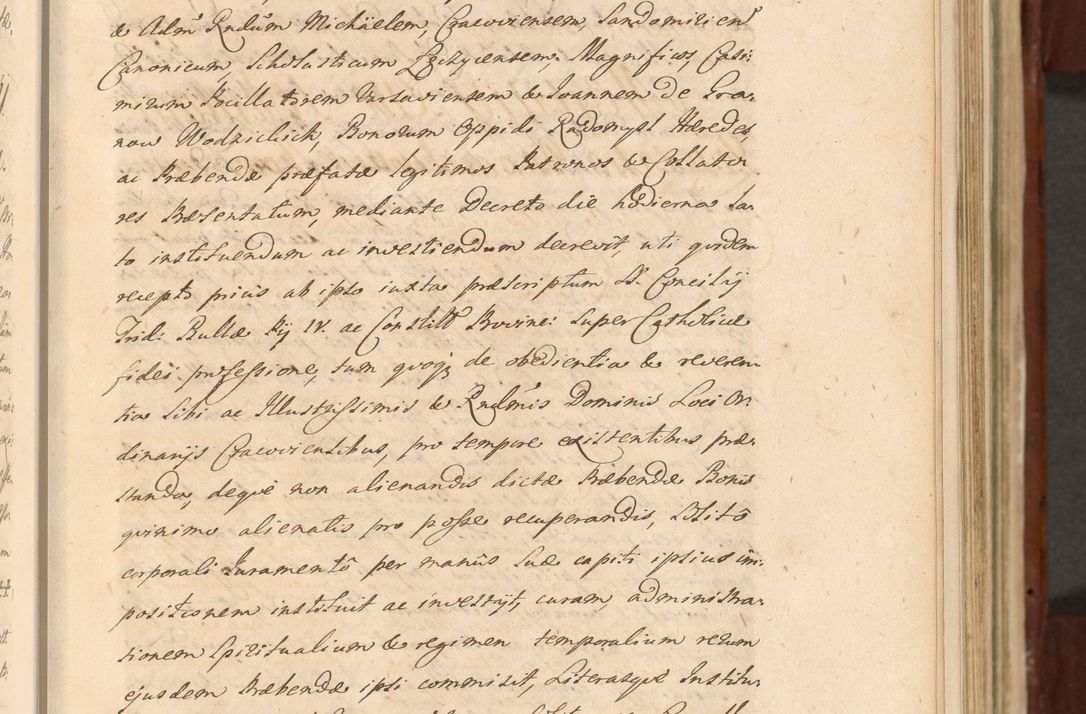 & Adm̃ Rndũm Michaëlem, Cracoviensem, Sandomirien̄
Canonicum, Scholasticum Łęczycensem, Magnificos Casi:
mirum Pocillatorem Varsaviensem & Joannem De Gra,
now Wodzickich, Bonorum Oppidi Radomysl Hæredes,
ac Præbendæ præfatæ legitimos Patronos & Collato
res Præsentatum, mediante Decreto die hodierna la,
to instituendum ac investiendum decrevit, uti quidem
recepto prius ab ipso iuxta præscriptum SS. Concilij
Trid: Bullæ Pij IV. ac Constitt Provinc: super Catholicæ
fidei professione, tum quoq3 de obedientia & reveren
tia Sibi ac Illustrissimis & Rndmis Dominis Loci Or,
dinarijs Cracoviensibus, pro tempore existentibus præ,
standa, deque non alienandis dictæ Præbendæ Bonis
quinimo alienatis pro posse recuperandis, solitô
corporali Juramentô per manus suæ capiti ipsius im,
positionem instituit ac investijt, curam, administra,
tionem Spiritualium & regimen temporalium rerum
ejusdem Præbendæ ipsi commisit, Literasque Institu,